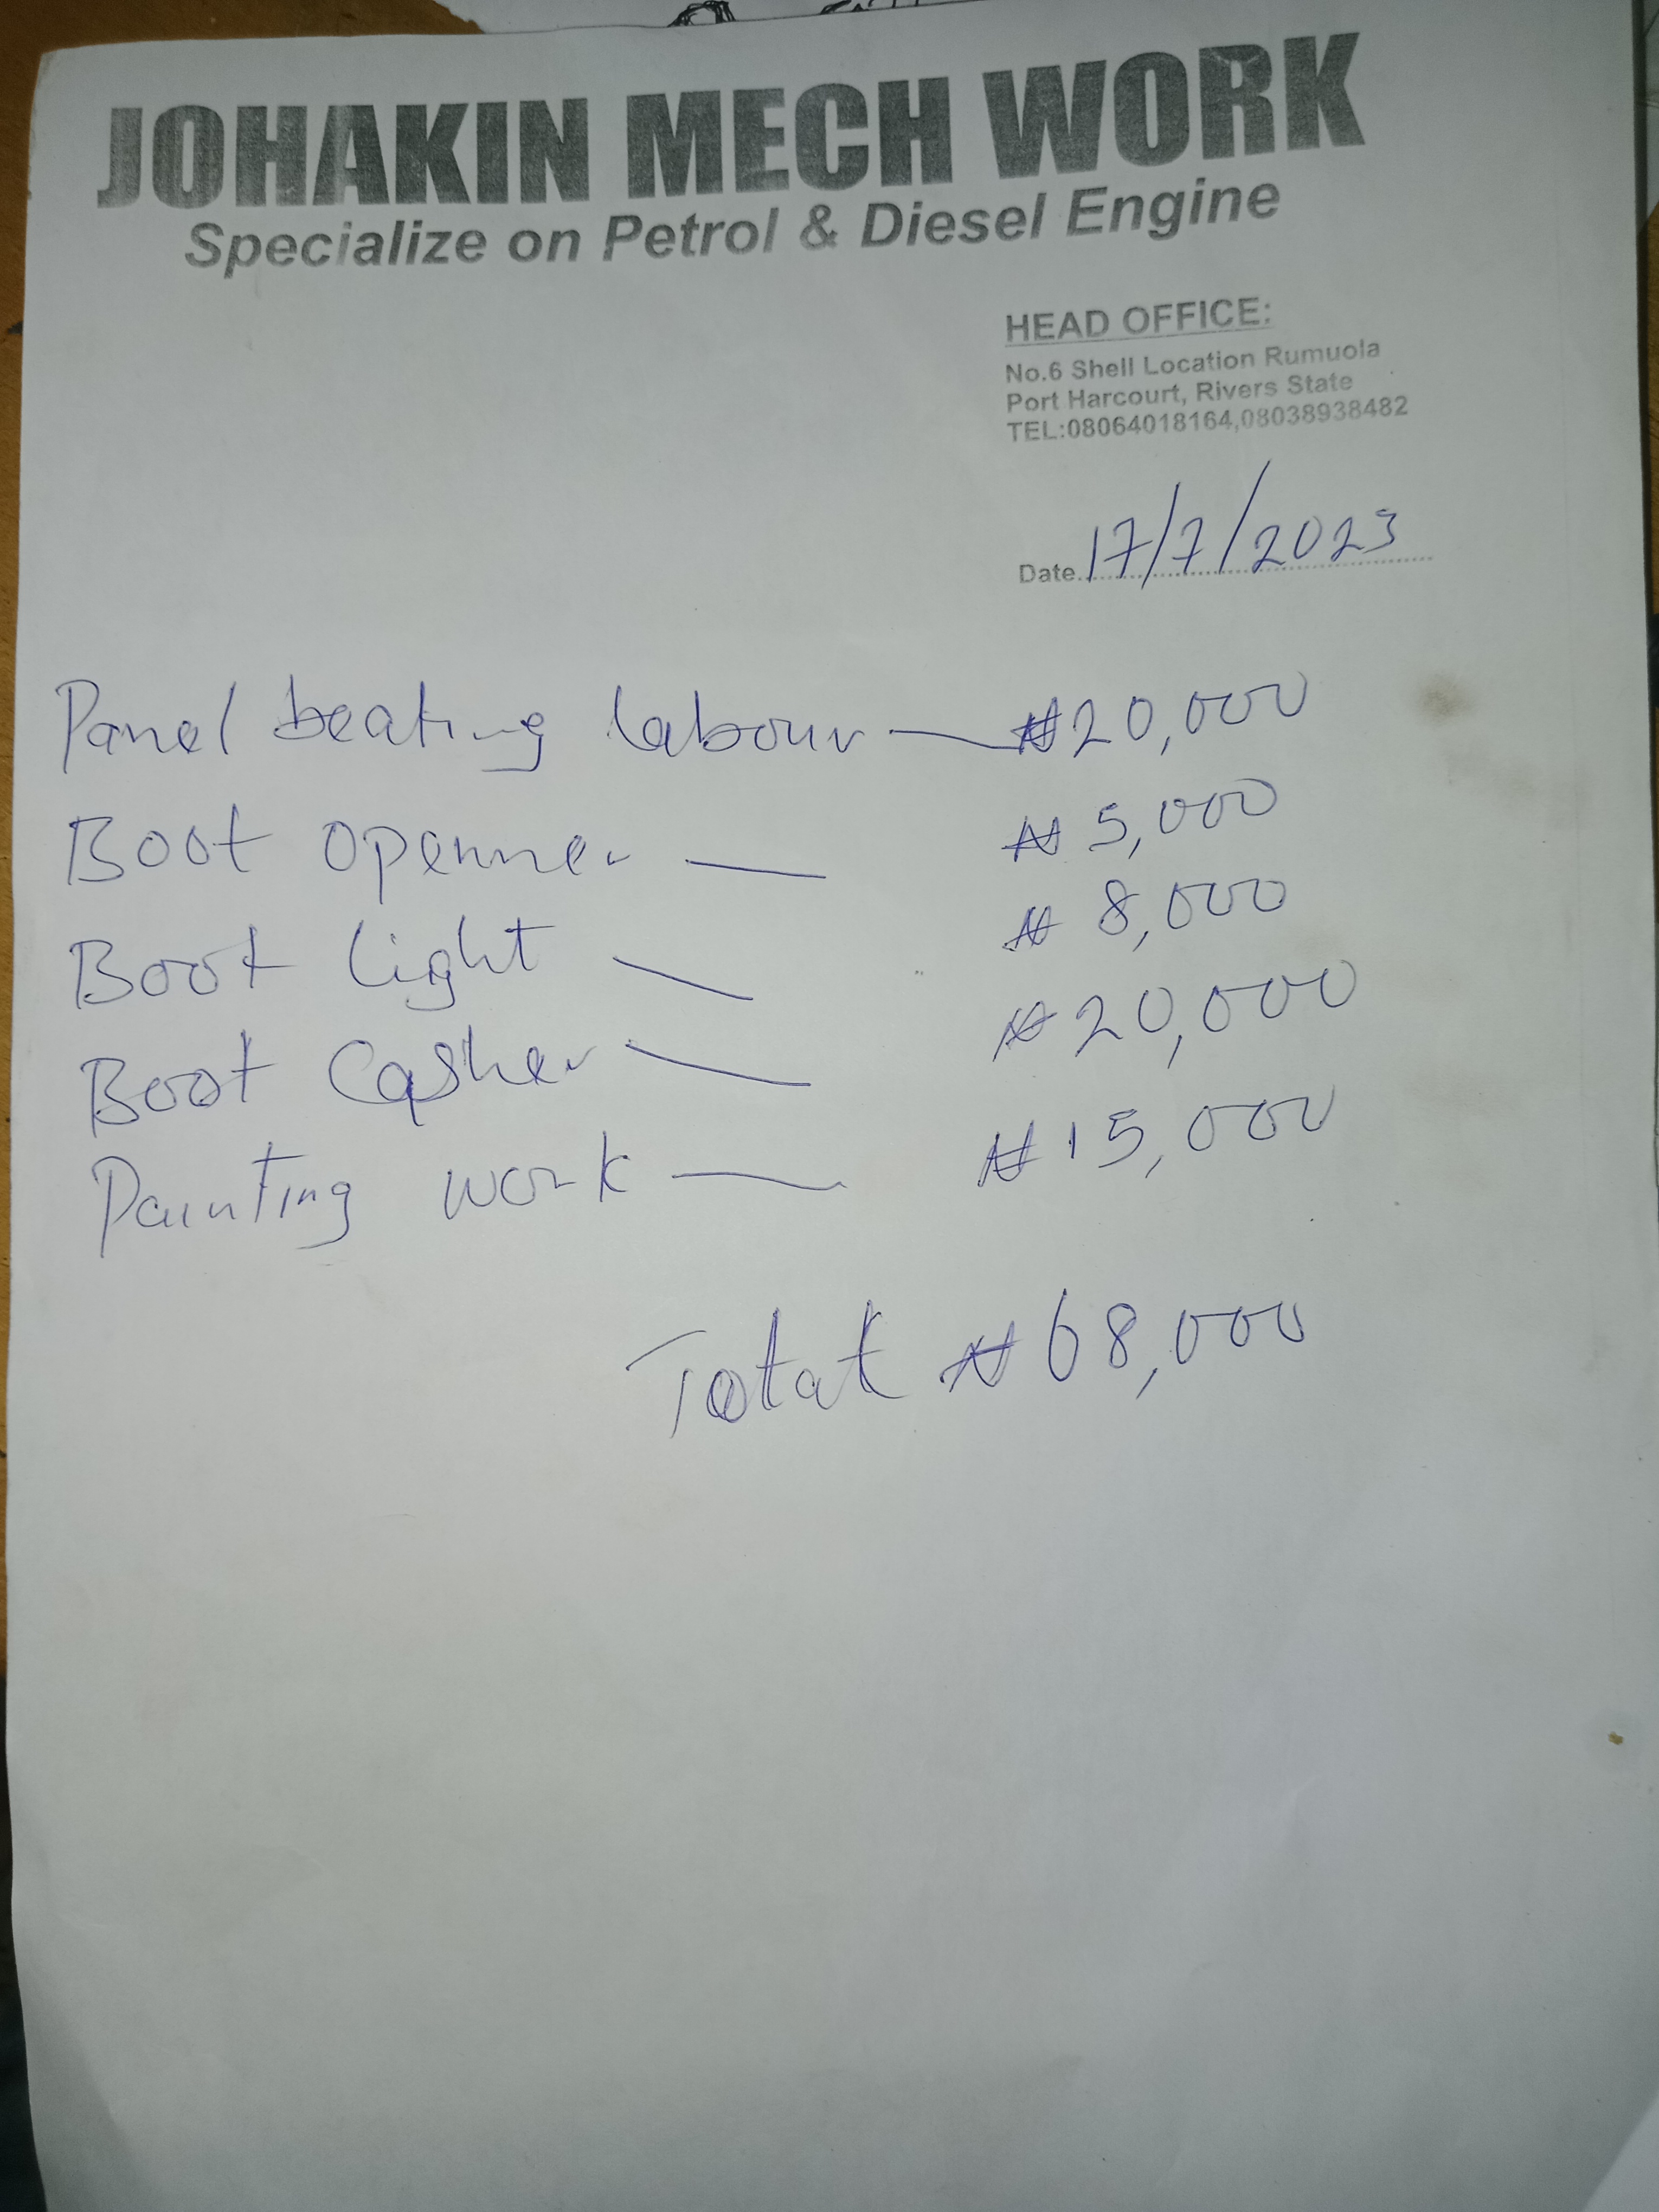 JOHAKIN MECH WORK
Specialize on Petrol & Diesel Engine
HEAD OFFICE:
No.6 Shell Location Rumuola
Port Harcourt, Rivers State
TEL:08064018164,08038938482
Date 17/7/2023
Panel beating labour — ₦20,000
Boot openner — ₦5,000
Boot light — ₦8,000
Boot Casher — ₦20,000
Painting work — ₦15,000
Total ₦68,000